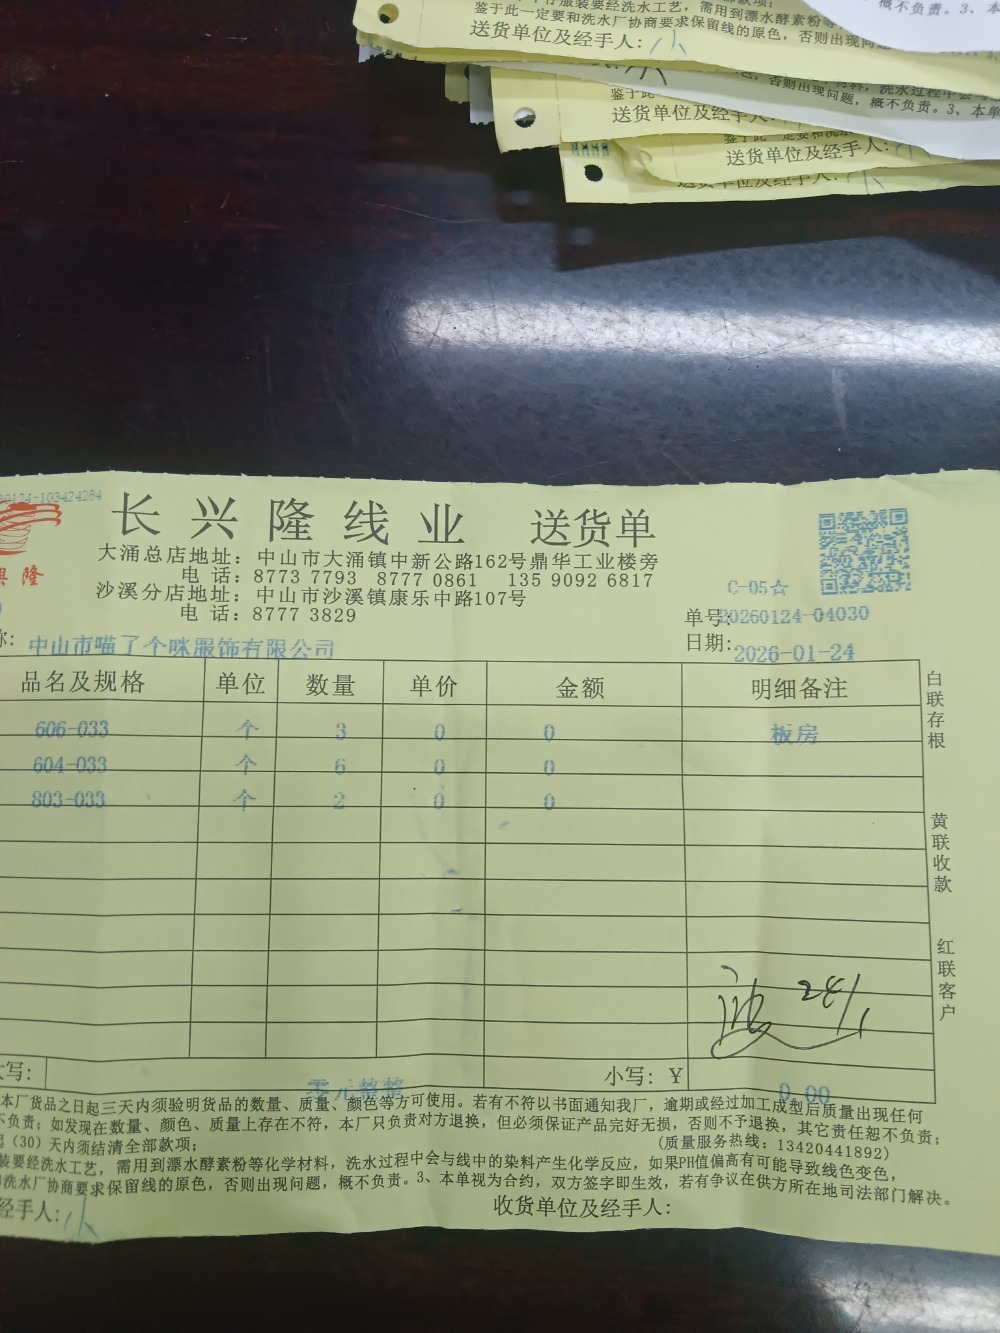 鉴于此一定要和洗水厂协商要求保留线的原色，否则出现问
概不负责。3、本
送货单位及经手人：小
否则出现问题，概不负责。3、本单
送货单位及经手人：
送货单位及经手人：
送货单位及经手人：小
60124-103424284
长兴隆线业 送货单
兴隆
大涌总店地址：中山市大涌镇中新公路162号鼎华工业楼旁
电 话：8773 7793 8777 0861 135 9092 6817
沙溪分店地址：中山市沙溪镇康乐中路107号
电 话：8777 3829
C-05☆
单号：20260124-04030
日期：2026-01-24
称：中山市喵了个咪服饰有限公司
品名及规格 单位 数量 单价 金额 明细备注
606-033 个 3 0 0 板房
604-033 个 6 0 0
803-033 个 2 0 0
白联存根
黄联收款
红联客户
24/1
大写：零元整整 小写：¥ 0.00
本厂货品之日起三天内须验明货品的数量、质量、颜色等方可使用。若有不符以书面通知我厂，逾期或经过加工成型后质量出现任何
不负责；如发现在数量、颜色、质量上存在不符，本厂只负责对方退换，但必须保证产品完好无损，否则不予退换，其它责任恕不负责；
（30）天内须结清全部款项； （质量服务热线：13420441892）
装要经洗水工艺，需用到漂水酵素粉等化学材料，洗水过程中会与线中的染料产生化学反应，如果PH值偏高有可能导致线色变色，
洗水厂协商要求保留线的原色，否则出现问题，概不负责。3、本单视为合约，双方签字即生效，若有争议在供方所在地司法部门解决。
经手人：小 收货单位及经手人：